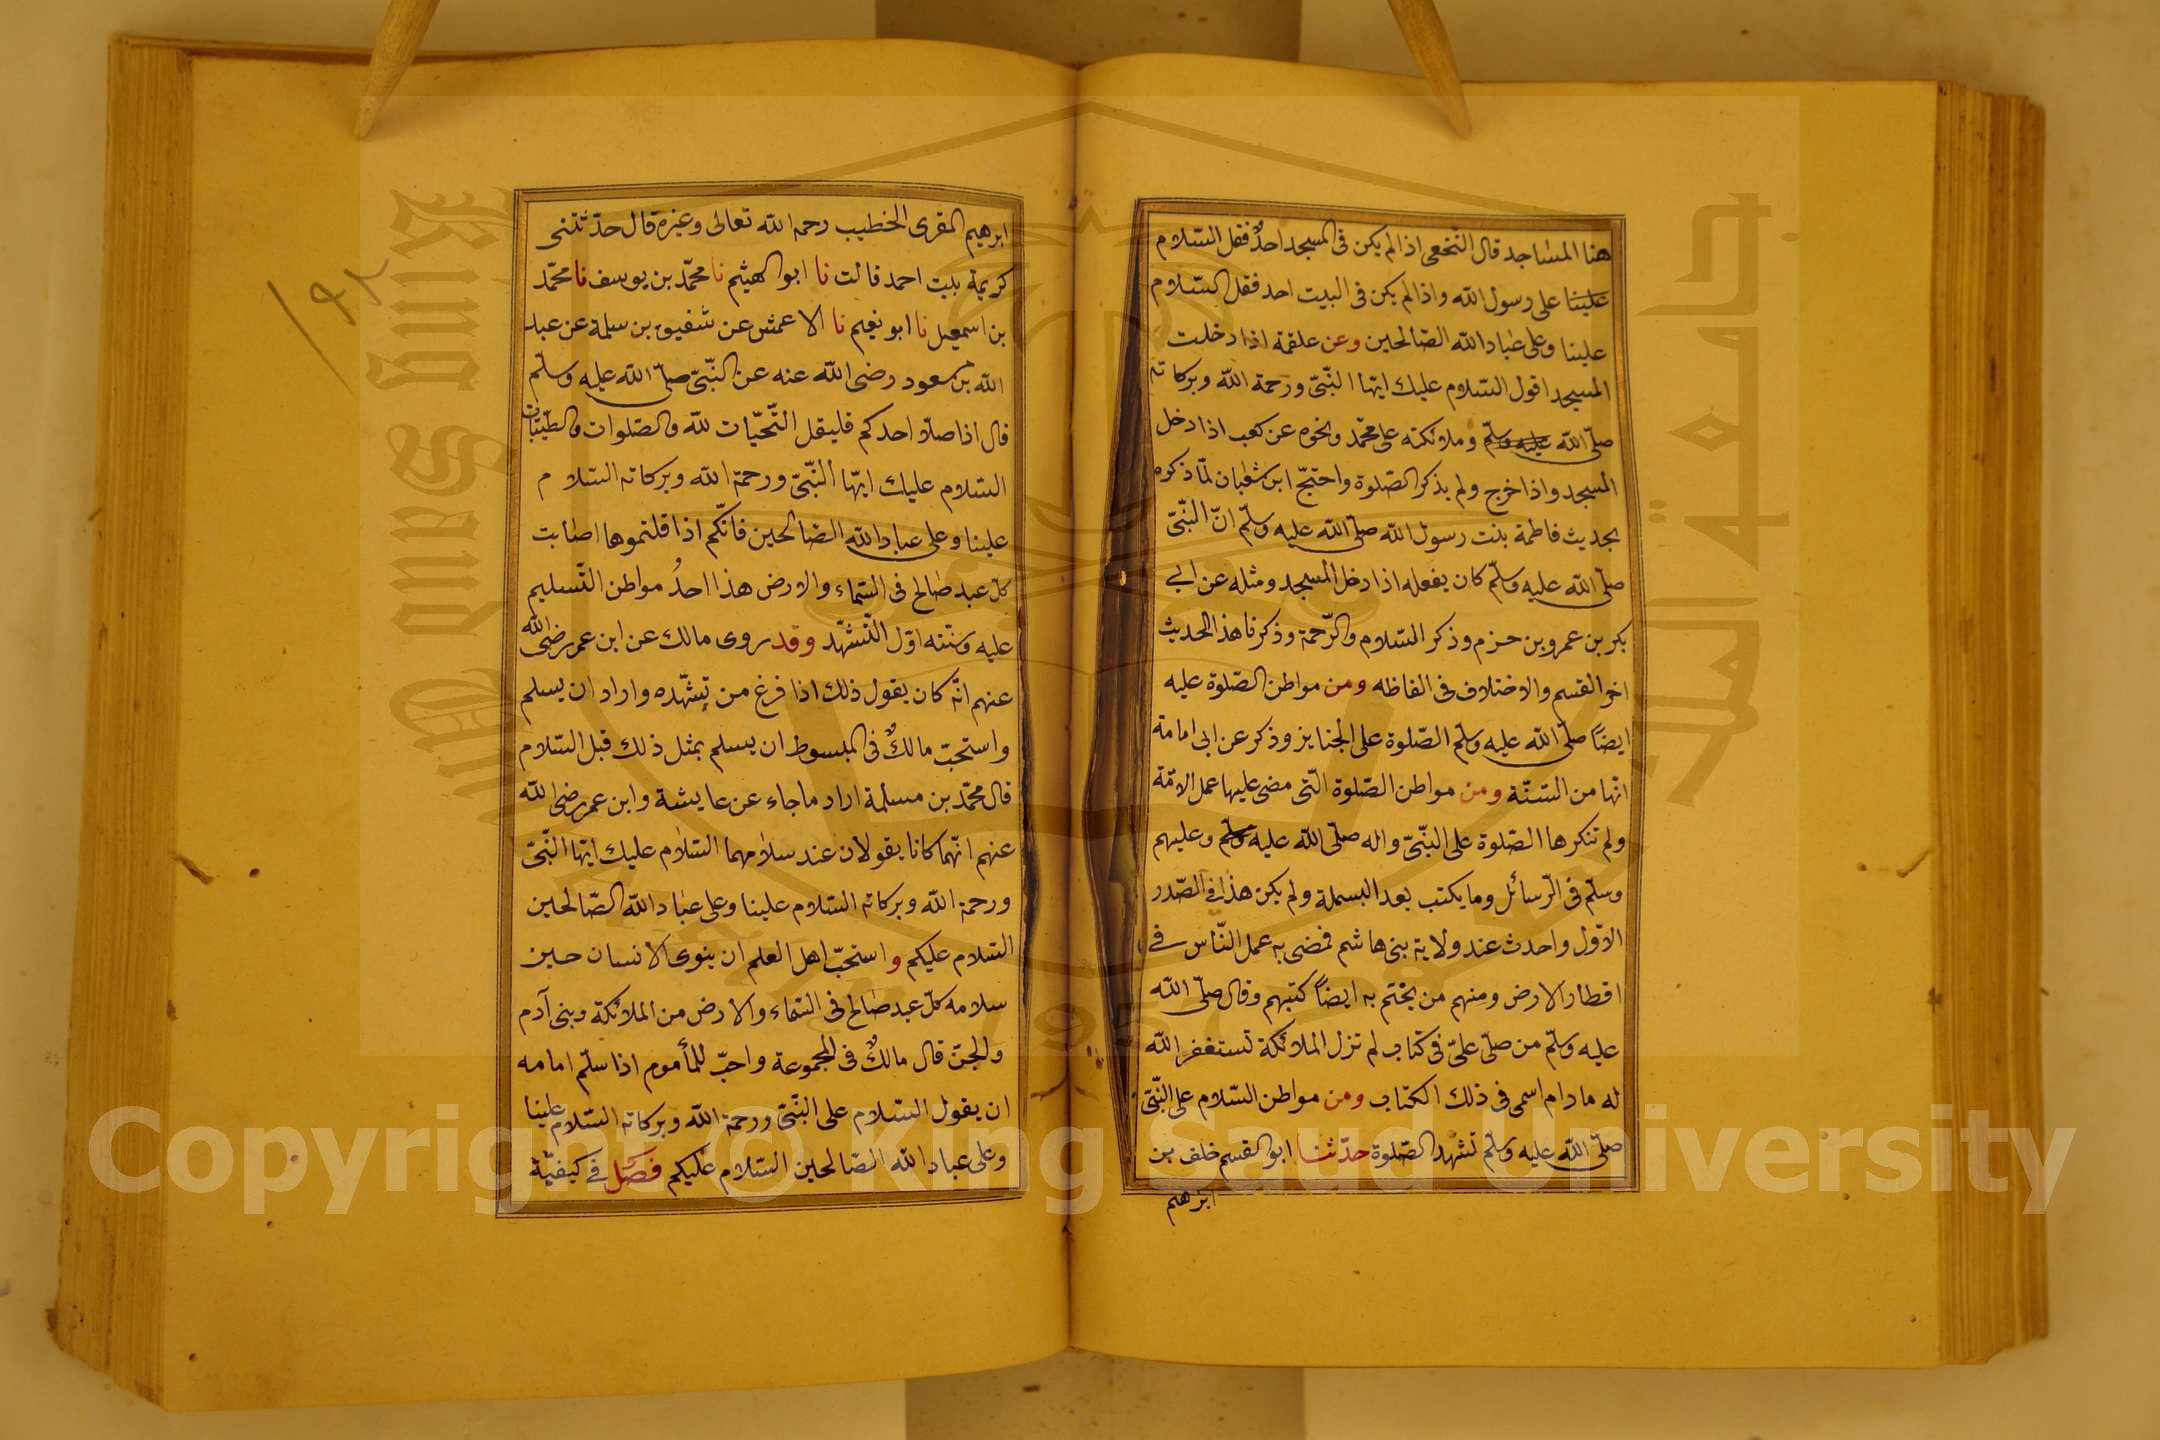 هنا المساجد قال النّخعى اذا لم يكن فى المسجد احدٌ فقل السّلام
علينا على رسول الله واذا لم يكن فى البيت احد فقل السّلام
علينا وعلى عباد الله الصّالحين وعن علقمة اذا دخلت
المسجد اقول السّلام عليك ايّها النّبىّ ورحمة الله وبركاته
صلّى الله عليه وسلّم وملائكته على محمّد ونحوه عن كعب اذا دخل
المسجد واذا خرج ولم يذكر الصّلوة واحتجّ ابن شعبان لمّا ذكره
بحديث فاطمة بنت رسول الله صلّى الله عليه وسلّم انّ النّبىّ
صلّى الله عليه وسلّم كان يفعله اذا دخل المسجد ومثله عن ابى
بكر بن عمرو بن حزم وذكر السّلام والرّحمة وذكرنا هذا الحديث
اخر القسم والاختلاف فى الفاظه ومن مواطن الصّلوة عليه
ايضًا صلّى الله عليه وسلّم الصّلوة على الجنايز وذكر عن ابى امامة
انّها من السّنّة ومن مواطن الصّلوة الّتى مضى عليها عمل الامّة
ولم تنكرها الصّلوة على النّبىّ واله صلّى الله عليه وسلّم وعليهم
وسلّم فى الرّسائل وما يكتب بعد البسملة ولم يكن هذا فى الصّدر
الاوّل واحدث عند ولاية بنى هاشم فمضى به عمل النّاس فى
اقطار الارض ومنهم من يختم به ايضاً كتبهم وقال صلّى الله
عليه وسلّم من صلّى علىّ فى كتاب لم تزل الملائكة تستغفر الله
له ما دام اسمى فى ذلك الكتاب ومن مواطن السّلام على النّبىّ
صلّى الله عليه وسلّم تشهّد الصّلوة حدّثنا ابو القسم خلف بن
ابرهيم
ابرهيم المقرى الخطيب رحمه الله تعالى وغيره قال حدّثتنى
كريمة بنت احمد قالت نا ابو الهيثم نا محمّد بن يوسف نا محمّد
بن اسمعيل نا ابو نعيم نا الاعمش عن شقيق بن سلمة عن عبد
الله بن مسعود رضى الله عنه عن النّبىّ صلّى الله عليه وسلّم
قال اذا صلّا احدكم فليقل التّحيّات لله والصّلوات والطّيّبات
السّلام عليك ايّها النّبىّ ورحمة الله وبركاته السّلام
علينا وعلى عباد الله الصّالحين فانّكم اذا قلتموها اصابت
كلّ عبد صالح فى السّماء والارض هذا احدُ مواطن التّسليم
عليه وسنّته اوّل التّشهّد وقد روى مالك عن ابن عمر رضى الله
عنهم انّه كان يقول ذلك اذا فرغ من تشهّده واراد ان يسلم
واستحبّ مالكٌ فى المبسوط ان يسلم بمثل ذلك قبل السّلام
قال محمّد بن مسلمة اراد ما جاء عن عايشة وابن عمر رضى الله
عنهم انّهما كانا يقولان عند سلامهما السّلام عليك ايّها النّبىّ
ورحمة الله وبركاته السّلام علينا وعلى عباد الله الصّالحين
السّلام عليكم واستحبّ اهل العلم ان ينوى الانسان حين
سلامه كلّ عبد صالح فى السّماء والارض من الملائكة وبنى آدم
والجنّ قال مالكٌ فى المجموعة واحبّ للمأموم اذا سلّم امامه
ان يقول السّلام على النّبىّ ورحمة الله وبركاته السّلام علينا
وعلى عباد الله الصّالحين السّلام عليكم فصل فى كيفيّة
١٩٢
Copyright © King Saud University
King Saud University
جامعة الملك سعود
1957